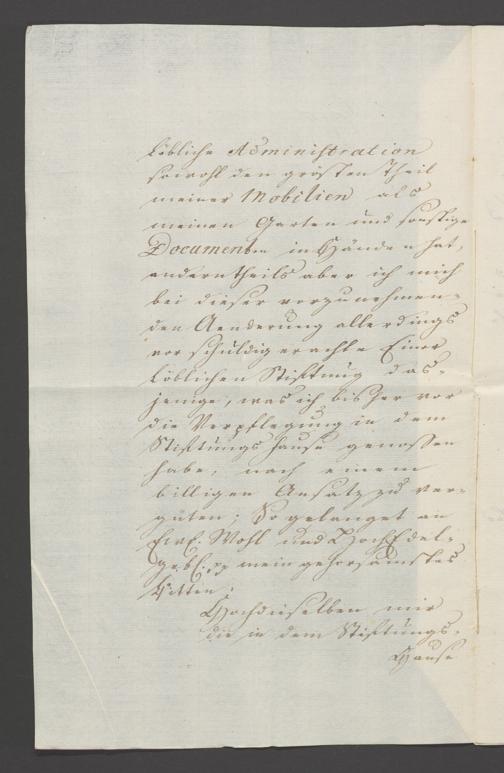 Löbliche Administration
sowohl den grösten Theil
meiner Mobilien als
meinen Garten und sonstige
Documenten in Händen hat,
anderntheils aber ich mich
bei dieser vorzunehmen-
den Aenderung allerdings
vor schuldig erachte Einer
Löblichen Stiftung das-
jenige, was ich bisher vor
die Verpflegung in dem
Stiftungshause genossen
habe, nach einem
billigen Ansatz zu ver-
güten; So gelanget an
Ewl. Wohl und HochEdel-
gebl. pp mein gehorsamstes
Bitten;
Hochdieselben mir
die in dem Stiftungs-
Hause